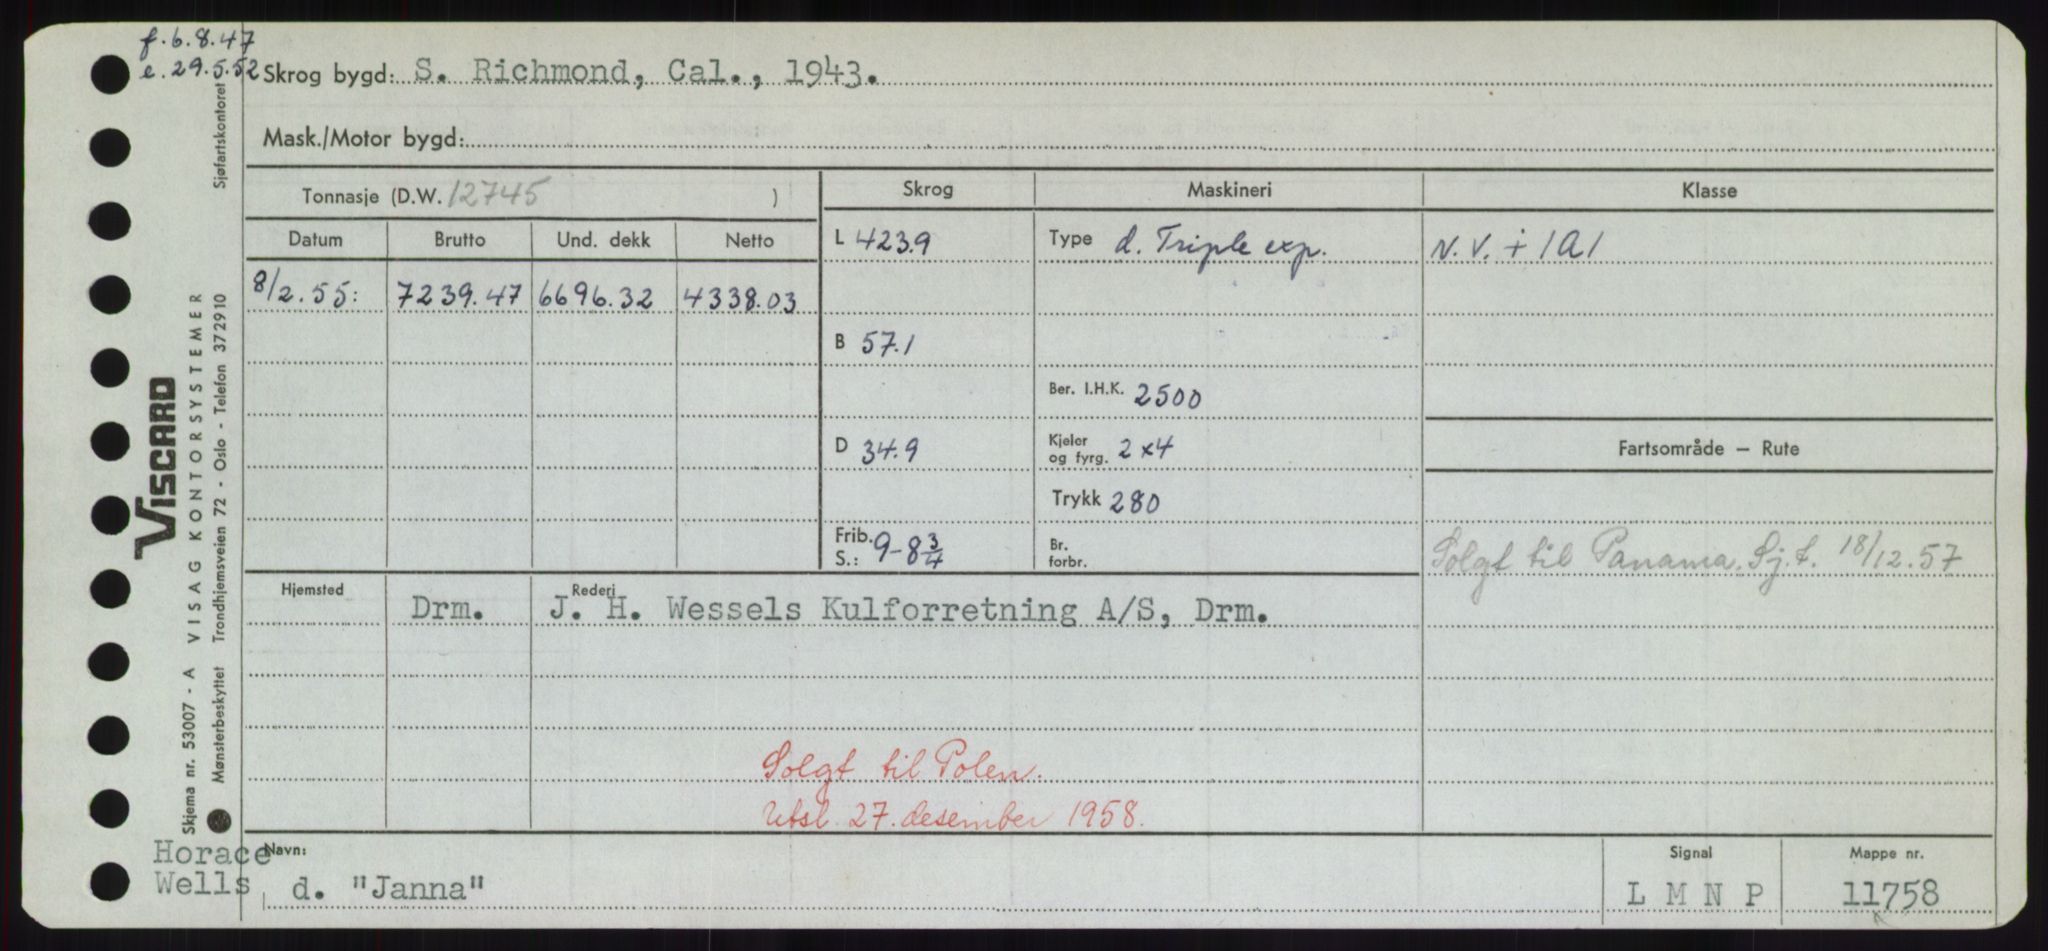 f. 6.8.47
e. 29.5.52
Skrog bygd: S. Richmond, Cal., 1943.
Mask./Motor bygd:
Tonnasje (D.W. 12745 )
Skrog
Maskineri
Klasse
Datum
Brutto
Und. dekk
Netto
L 423.9
Type d. Triple exp.
N.V. + 1A1
8/2.55:
7239.47
6696.32
4338.03
B 57.1
Ber. I.H.K. 2500
D 34.9
Kjeler
og fyrg. 2x4
Fartsområde — Rute
Trykk 280
Frib.
S.: 9-8 3/4
Br.
forbr.
Solgt til Panama. Sj.t. 18/12.57
Hjemsted
Drm.
Rederi
J. H. Wessels Kulforretning A/S, Drm.
Solgt til Polen.
Utsl. 27. desember 1958.
Horace
Wells
Navn:
d. "Janna"
Signal
L M N P
Mappe nr.
11758
VISCARD
VISAG KONTORSYSTEMER
Sjøfartskontoret
Skjema nr. 53007 - A
Mønsterbeskyttet Trondhjemsveien 72 - Oslo - Telefon 372910